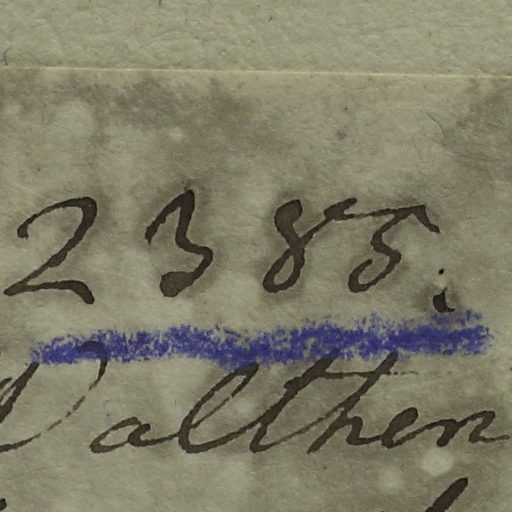 2385.
Walthen